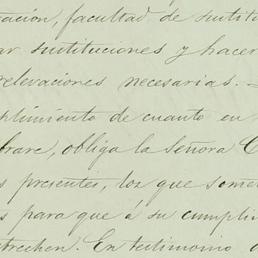 ración, facultad de sustitu
ar sustituciones y hacer
relevaciones necesarias.—
plimiento de cuanto en
brare, obliga la Señora C
s presentes, los que some
s para que á su cumplim
strechen. En testimonio d